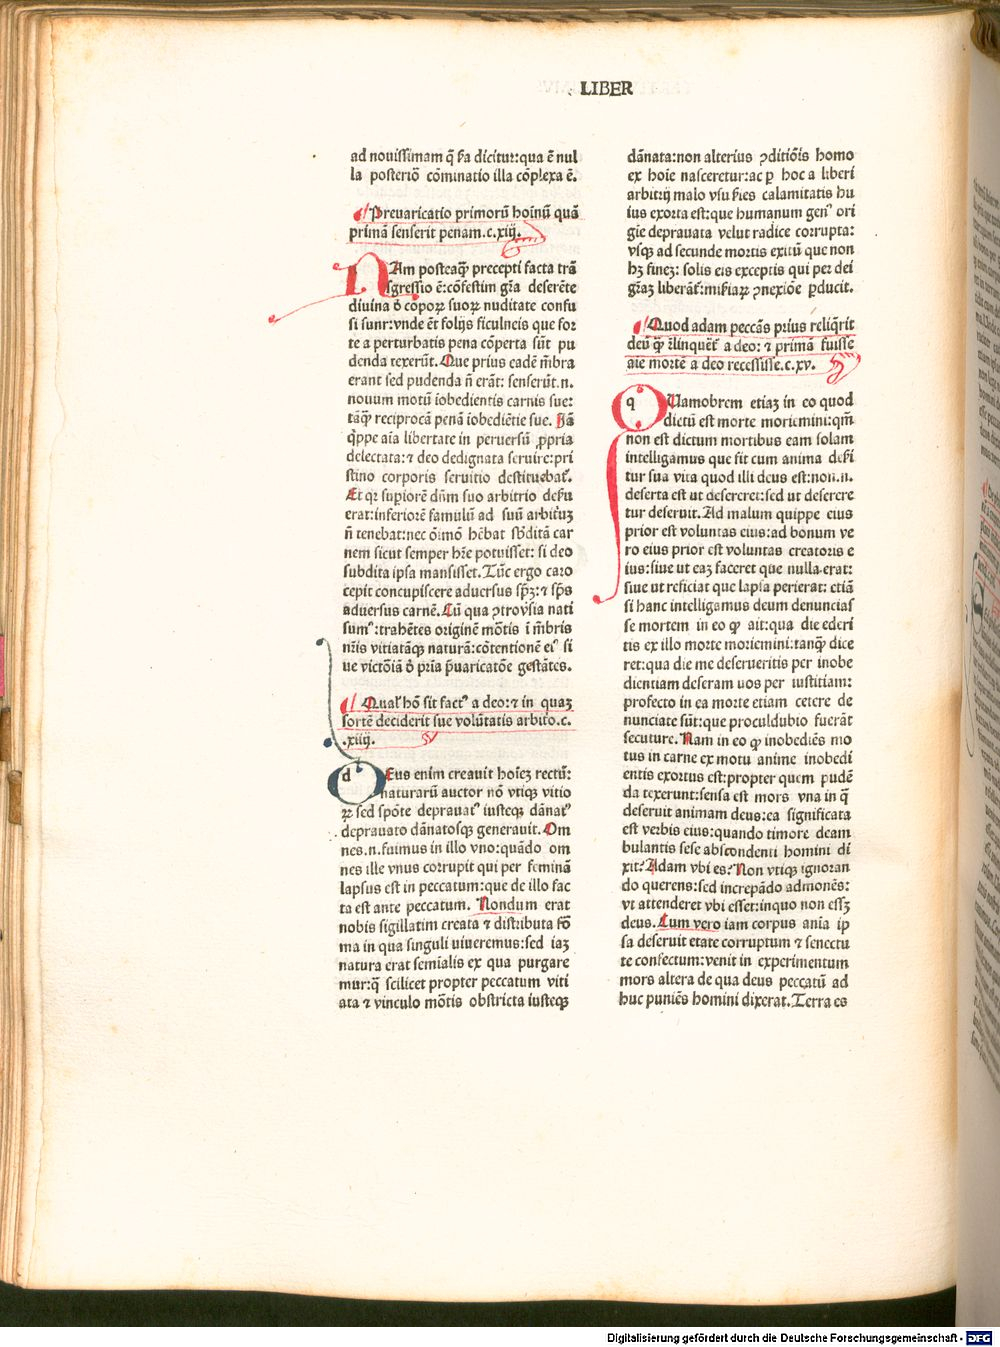 LIBER
ad nouissimam q̄ s̄a dicitur:qua ē nul
la posterio᷑ cōminatio illa cōplexa ē.
Preuaricatio primorū hoīnū quā
primā senserit penam.c.xiij.
NAm posteaq̄ precepti facta trā
sgressio ē:cōfestim gr̄a deserēte
diuina d̄ corpoꝝ suoꝝ nuditate confu
si sunt:vnde ēt folijs ficulneis que for
te a perturbatis pena cōperta sūt pu
denda texerūt. Que prius eadē m̄bra
erant sed pudenda n̄ erāt: senserūt.n.
nouum motū iobedientis carnis sue:
tāq̄ reciprocā penā iobediētie sue. Jā
q̄ppe aīa libertate in peruersū ꝓpria
delectata:⁊ deo dedignata seruire:pri
stino corporis seruitio destituebat᷑.
Et qꝛ supiorē dn̄m suo arbitrio deseru
erat:inferiorē famulū ad suū arbitꝛiūꝫ
n̄ tenebat:nec oīmō hēbat sb̄ditā car
nem sicut semper hr̄e potuisset: si deo
subdita ipsa mansisset. Tūc ergo caro
cepit concupiscere aduersus sp̄ꝫ: ⁊ sp̄s
aduersus carnē. Cū qua ꝯtrouersia nati
sumꝰ:trahētes originē mo᷑tis ī m̄bris
nr̄is vitiatāqꝫ naturā:cōtentionē eiꝰ si
ue victo᷑iā d̄ pria p̄uaricatōe gestātes.
Qual᷑ hō sit factꝰ a deo:⁊ in quaꝫ
sortē deciderit sue volūtatis arbit᷑o.c.
.xiiij.
dDEus enim creauit hoīeꝫ rectū:
naturarū auctor nō vtiqꝫ vitio
ꝝ sed spōte deprauatꝰ iusteqꝫ dānatꝰ
deprauato dānatosqꝫ generauit. Om
nes.n.fuimus in illo vno:quādo om
nes ille vnus corrupit qui per feminā
lapsus est in peccatum:que de illo fac
ta est ante peccatum. Nondum erat
nobis sigillatim creata ⁊ distributa fo᷑
ma in qua singuli uiueremus:sed iaꝫ
natura erat semīalis ex qua purgare
mur:q̄ scilicet propter peccatum viti
ata ⁊ vinculo mo᷑tis obstricta iusteqꝫ
dānata:non alterius ꝯditiōis homo
ex hoīe nasceretur:ac p̱ hoc a liberi
arbitꝛij malo vsu s̄ies calamitatis hu
ius exorta est:que humanum genꝰ ori
gie deprauata velut radice corrupta:
vsqꝫ ad secunde mortis exitū que non
hꝫ fineꝫ: solis eis exceptis qui per dei
gr̄aꝫ liberāt᷑:misiaꝝ ꝯnexiōe p̱ducit.
Quod adam peccās prius reliq̄rit
deū qꝫ r̄linqueret᷑ a deo: ⁊ primā fuisse
aīe mortē a deo recessisse.c.xv.
qQUamobrem etiaꝫ in eo quod
dictū est morte moriemini:qm̄
non est dictum mortibus eam solam
intelligamus que fit cum anima deseri
tur sua vita quod illi deus est:non.n.
deserta est ut desereret:sed ut desere
tur deseruit. Ad malum quippe eius
prior est voluntas eius:ad bonum ve
ro eius prior est voluntas creatoris e
ius:siue ut eaꝫ faceret que nulla erat:
siue ut reficiat que lapsa perierat: etiā
si hanc intelligamus deum denuncias
se mortem in eo qꝙ ait:qua die ederi
tis ex illo morte moriemini:tanqꝫ dice
ret:qua die me deserueritis per inobe
dientiam deseram uos per iustitiam:
profecto in ea morte etiam cetere de
nunciate sūt:que proculdubio fuerāt
secuture. Nam in eo ꝙ inobediēs mo
tus in carne ex motu anime inobedi
entis exortus est:propter quem pudē
da texerunt:sensa est mors vna in q̄
deseruit animam deus:ea significata
est verbis eius:quando timore deam
bulantis sese abscondenti homini di
xit:Adam vbi es:Non vtiqꝫ ignoran
do querens:sed increpādo admonēs:
vt attenderet vbi esset:inquo non essꝫ
deus. Cum vero iam corpus anīa ip
sa deseruit etate corruptum ⁊ senectu
te confectum:venit in experimentum
mors altera de qua deus peccatū ad
huc puniēs homini dixerat.Terra es
Digitalisierung gefördert durch die Deutsche Forschungsgemeinschaft - DFG